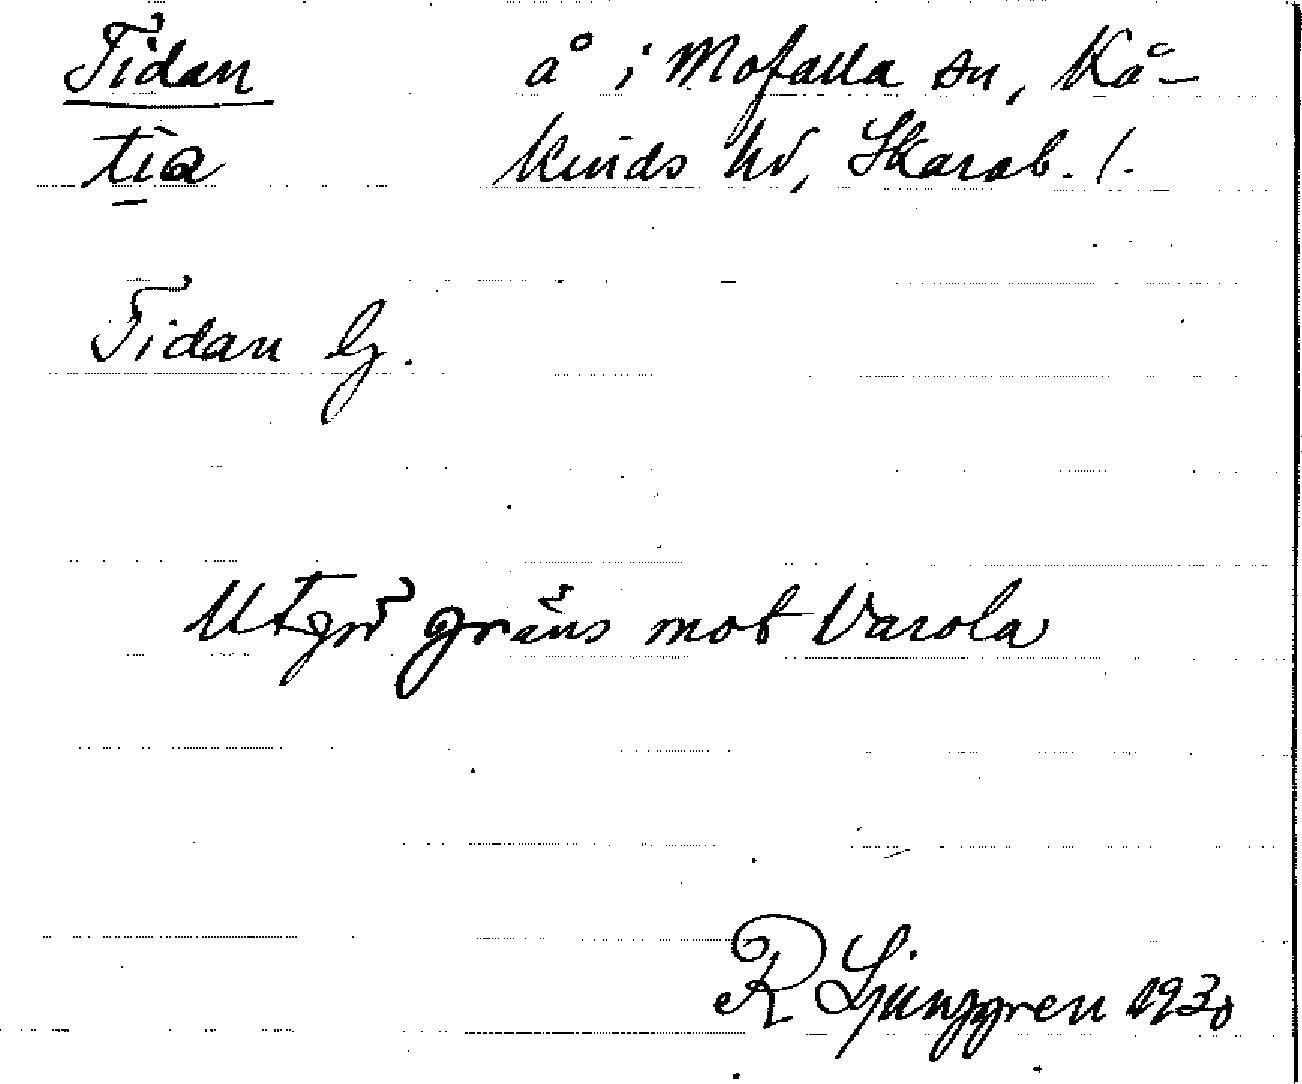 Tidan å i Mofalla sn, Kå-
tìa kinds hd, Skarab. l.
Tidan G.
Utgör gräns mot Varola
R Ljunggren 1930